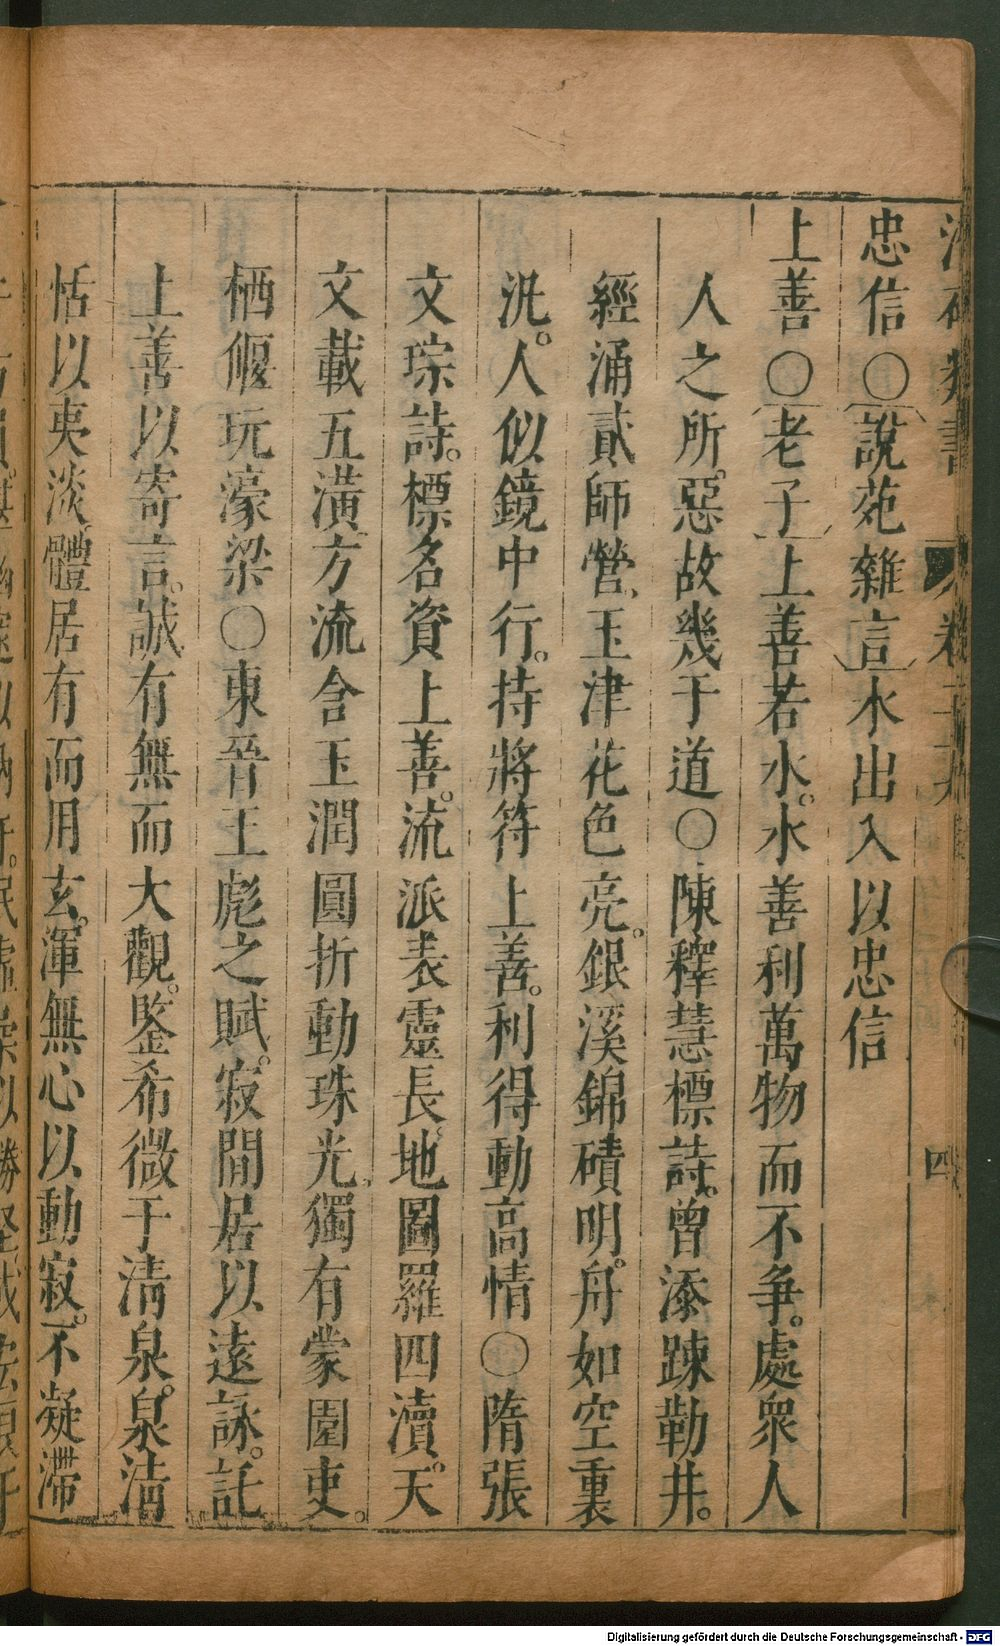 忠信〇說苑雜言水出入以忠信
上善〇老子上善若水。水善利萬物而不爭。處衆人
人之所。惡故幾于道〇陳釋慧標詩。曾添踈勒井。
經涌貳師營。玉津花色亮。銀溪錦磧明。舟如空裏
汎。人似鏡中行。持將符上善。利得動高情〇隋張
文琮詩。標名資上善。流派表靈長。地圖羅四瀆。天
文載五潢。方流含玉潤圓折動珠光。獨有蒙園吏。
栖偃玩濠梁〇東晉王彪之賦。寂閒居以遠詠。託
上善以寄言。誠有無而大觀。鑒希微于淸泉。泉淸
恬以夷淡。體居有而用玄。渾無心以動寂。不凝滯
四
Digitalisierung gefördert durch die Deutsche Forschungsgemeinschaft - DFG